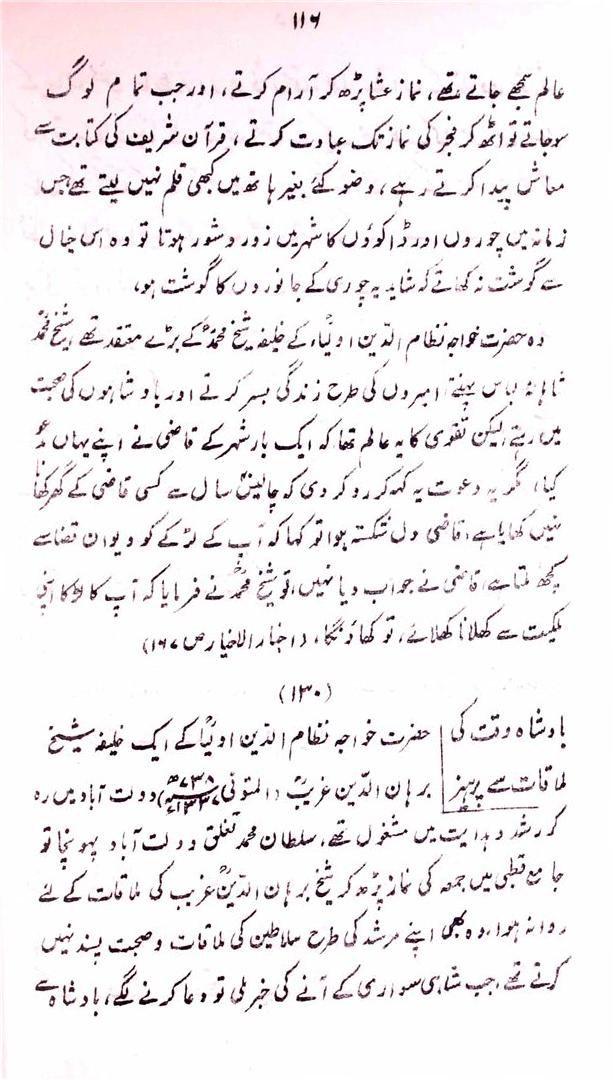 ۱۱۶
عالم سمجھے جاتے تھے، نماز عشا پڑھ کر آرام کرتے، اور جب تمام لوگ
سو جاتے تو اٹھ کر فجر کی نماز تک عبادت کرتے، قرآن شریف کی کتابت سے
معاش پیدا کرتے رہے، وضو کئے بغیر ہاتھ میں کبھی قلم نہیں لیتے تھے جس
زمانہ میں چوروں اور ڈاکوؤں کا شہر میں زور و شور ہوتا تو وہ اس خیال
سے گوشت نہ کھاتے کہ شاید یہ چوری کے جانوروں کا گوشت ہو،
وہ حضرت خواجہ نظام الدین اولیاؒء کے خلیفہ شیخ محمدؒ کے بڑے معتقد تھے، شیخ محمدؒ
شاہانہ لباس پہنتے، امیروں کی طرح زندگی بسر کرتے اور بادشاہوں کی صحبت
میں رہتے لیکن تقویٰ کا یہ عالم تھا کہ ایک بار شہر کے قاضی نے اپنے یہاں مدعو
کیا، مگر یہ دعوت یہ کہہ کر رد کر دی کہ چالیس سال سے کسی قاضی کے گھر کھانا
نہیں کھایا ہے، قاضی دل شکستہ ہوا تو کہا کہ آپ کے لڑکے کو دیوان قضا سے
کچھ ملتا ہے، قاضی نے جواب دیا نہیں، تو شیخ محمدؒ نے فرمایا کہ آپ کا لڑکا اپنی
ملکیت سے کھانا کھلائے، تو کھاؤنگا، (اخبار الاخیار ص ۱۶۷)
(۱۳۰)
بادشاہ وقت کی حضرت خواجہ نظام الدین اولیاؒ کے ایک خلیفہ شیخ
ملاقات سے پرہیز برہان الدین غریبؒ (المتوفی ۷۳۸ھ ۱۳۳۷ء) دولت آباد میں رہ
کر رشد و ہدایت میں مشغول تھے، سلطان محمد تغلق دولت آباد پہونچا تو
جامع قطبی میں جمعہ کی نماز پڑھ کر شیخ برہان الدینؒ غریب کی ملاقات کے لئے
روانہ ہوا، وہ بھی اپنے مرشد کی طرح سلاطین کی ملاقات و صحبت پسند نہیں
کرتے تھے، جب شاہی سواری کے آنے کی خبر ملی تو دعا کرنے لگے، بادشاہ سے